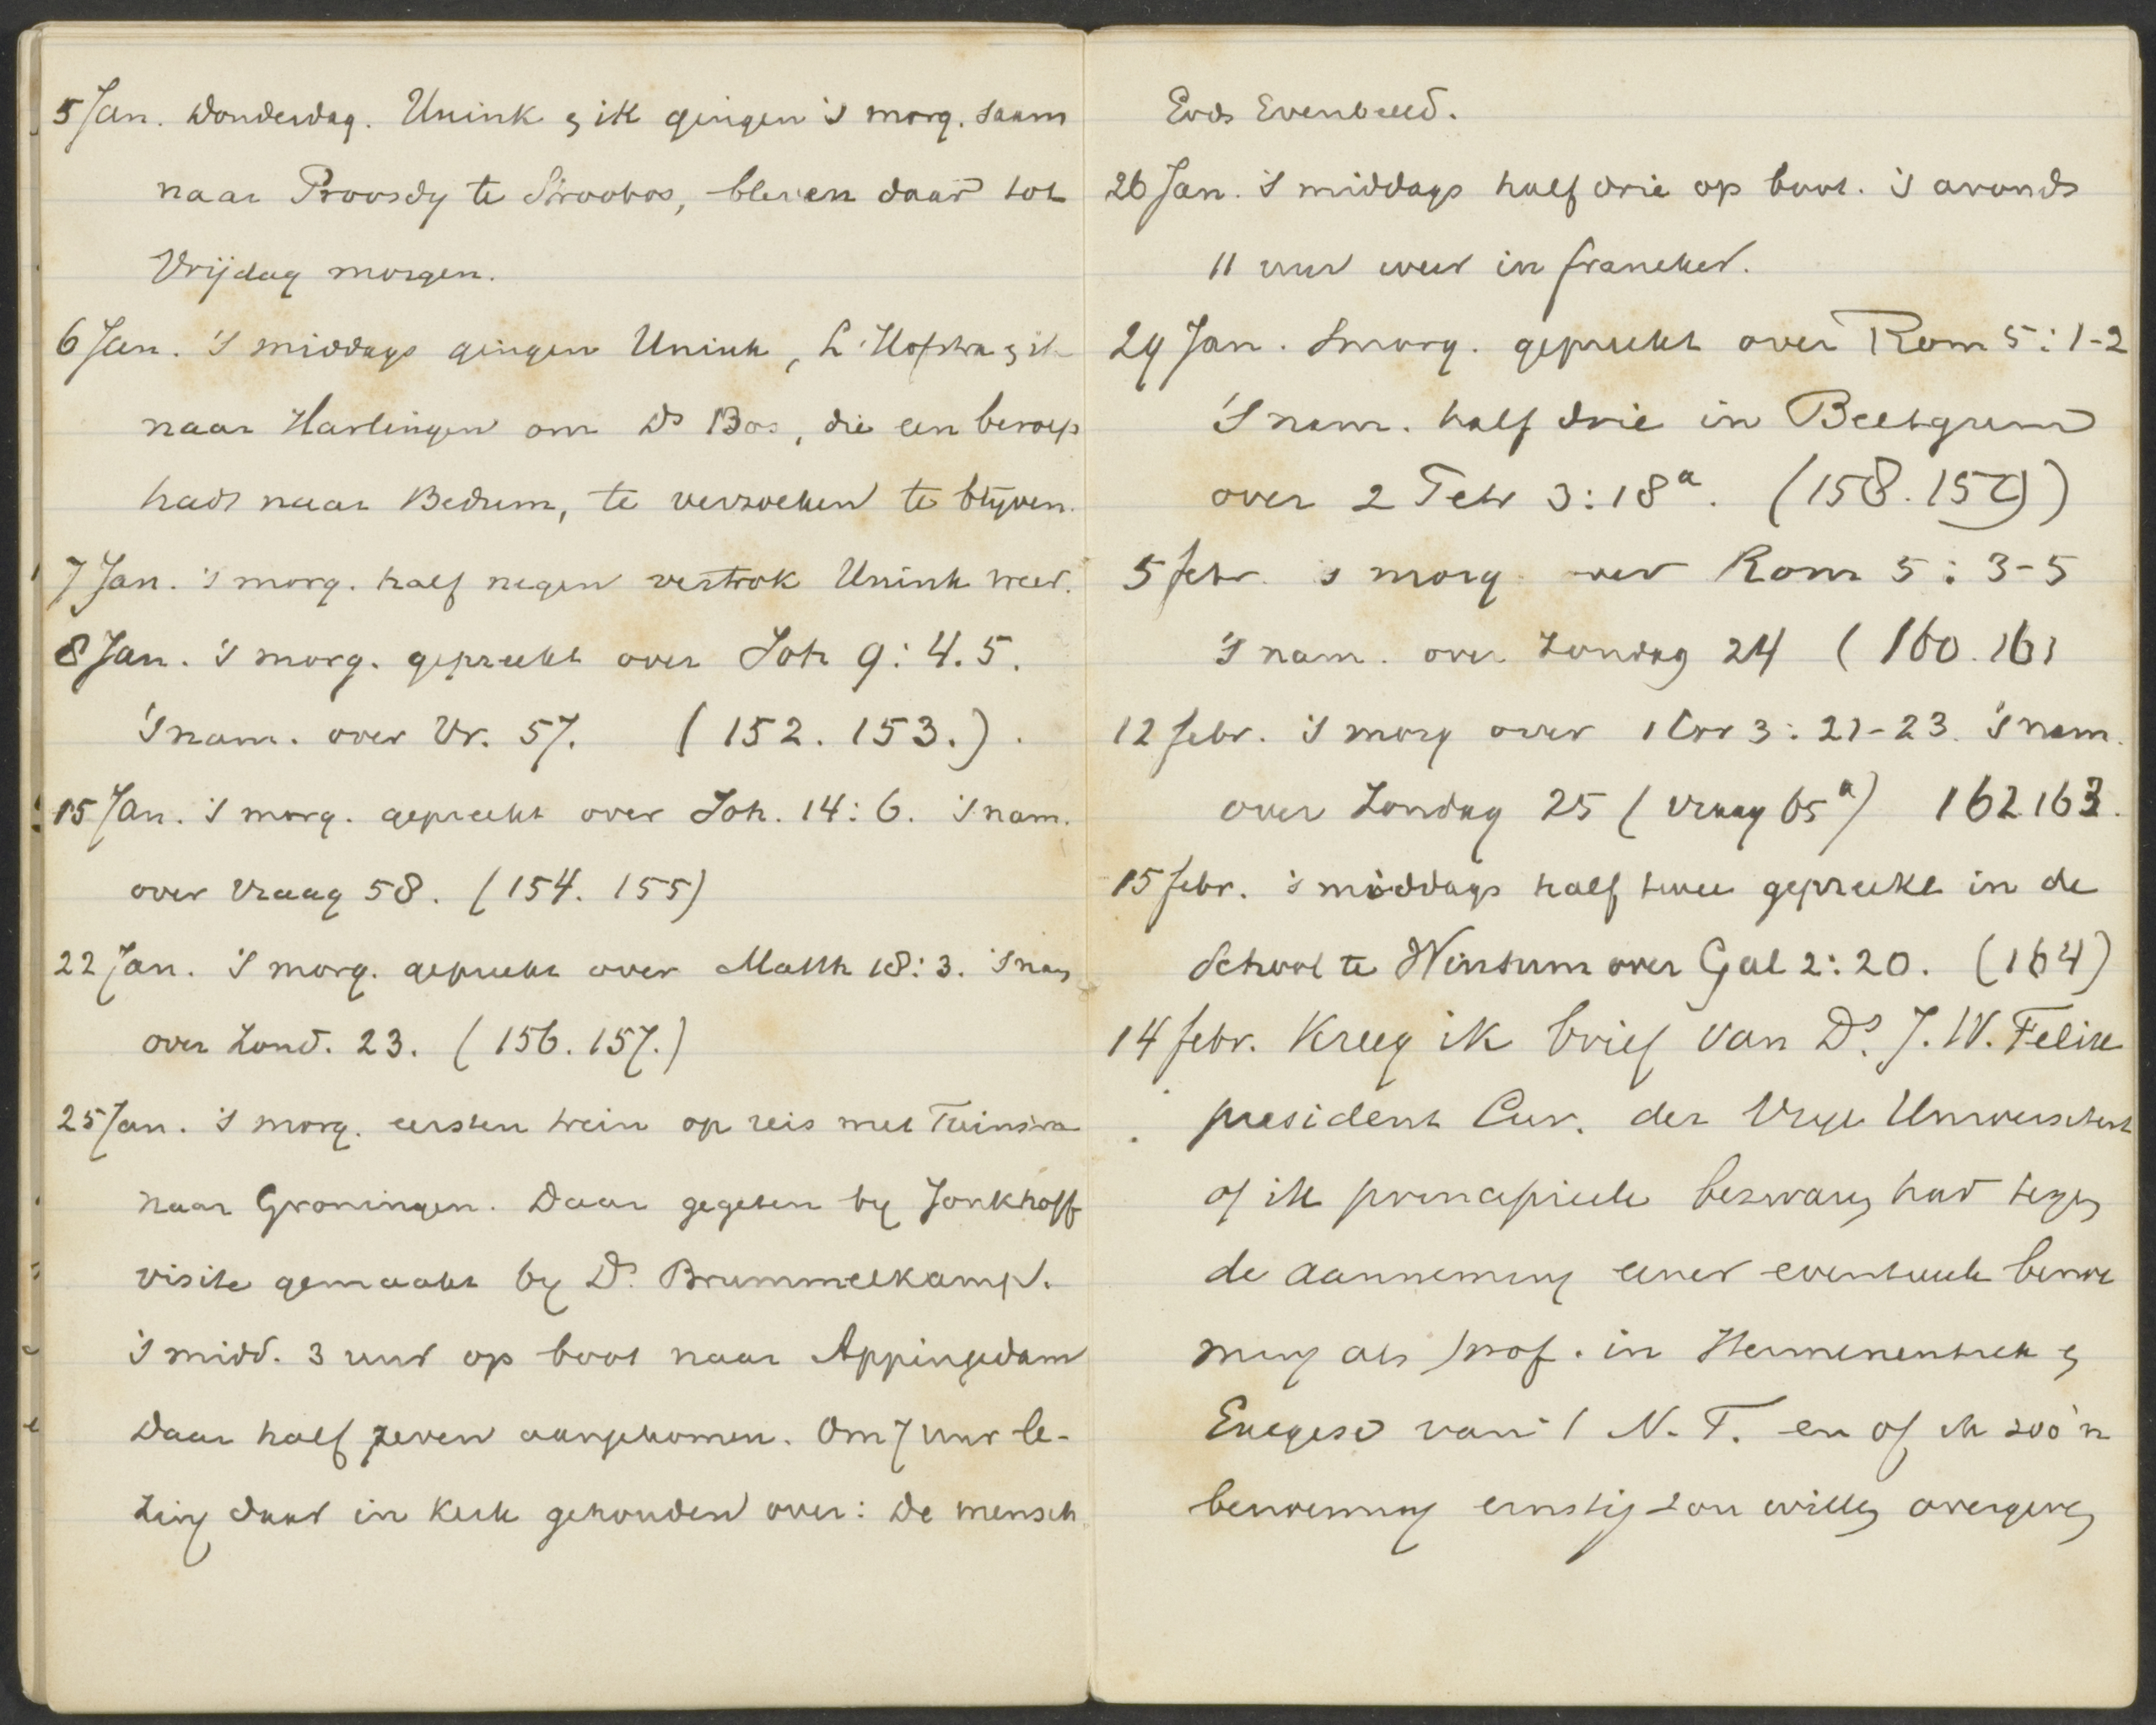 5 Jan. Donderdag. Unink & ik gingen 's morg. saam
naar Proosdy te Stroobos, bleven daar tot
Vrijdag morgen.
6 Jan. 's middags gingen Unink, L. Hofstra & ik
naar Harlingen om Ds Bos, die een beroep
had naar Bedum, te verzoeken te blyven.
7 Jan. 's morg. half negen vertrok Unink weer.
8 Jan. 's morg. gepreekt over Joh 9: 4.5.
's nam. over Vr. 57. (152. 153.).
15 Jan. 's morg. gepreekt over Joh. 14: 6. 's nam.
over Vraag 58. (154. 155)
22 Jan. 's morg. gepreekt over Matth 18: 3. 's nam
over Zond. 23. (156. 157.)
25 Jan. 's morg. eersten trein op reis met Tuinstra
naar Groningen. Daar gegeten by Jonkhoff
visite gemaakt by Ds. Brummelkamp.
's midd. 3 uur op boot naar Appingedam
Daar half zeven aangekomen. Om 7 uur le-
zing daar in Kerk gehouden over: De mensch
Gods Evenbeeld.
26 Jan. 's middags half drie op boot. 's avonds
11 uur weer in Franeker.
29 Jan. Smorg. gepreekt over Rom 5: 1-2
's nam. half drie in Beetgum
over 2 Petr 3: 18a. (158. 159)
5 Febr. 's morg. over Rom 5: 3-5
's nam. over Zondag 24 (160. 161
12 Febr. 's morg over 1 Cor 3: 21-23. 's nam.
over Zondag 25 (Vraag 65a) 162 163.
15 Febr. 's middags half twee gepreekt in de
School te Winsum over Gal 2: 20. (164)
14 Febr. Kreeg ik brief van Ds. J. W. Felix
president Cur. der Vrije Universiteit
of ik principieele bezwaren had tegen
de aanneming eener eventueele benoe
ming als prof. in Hermeneutiek &
Exegese van 't N. T. en of ik zoo'n
benoeming ernstig zou willen overwegen